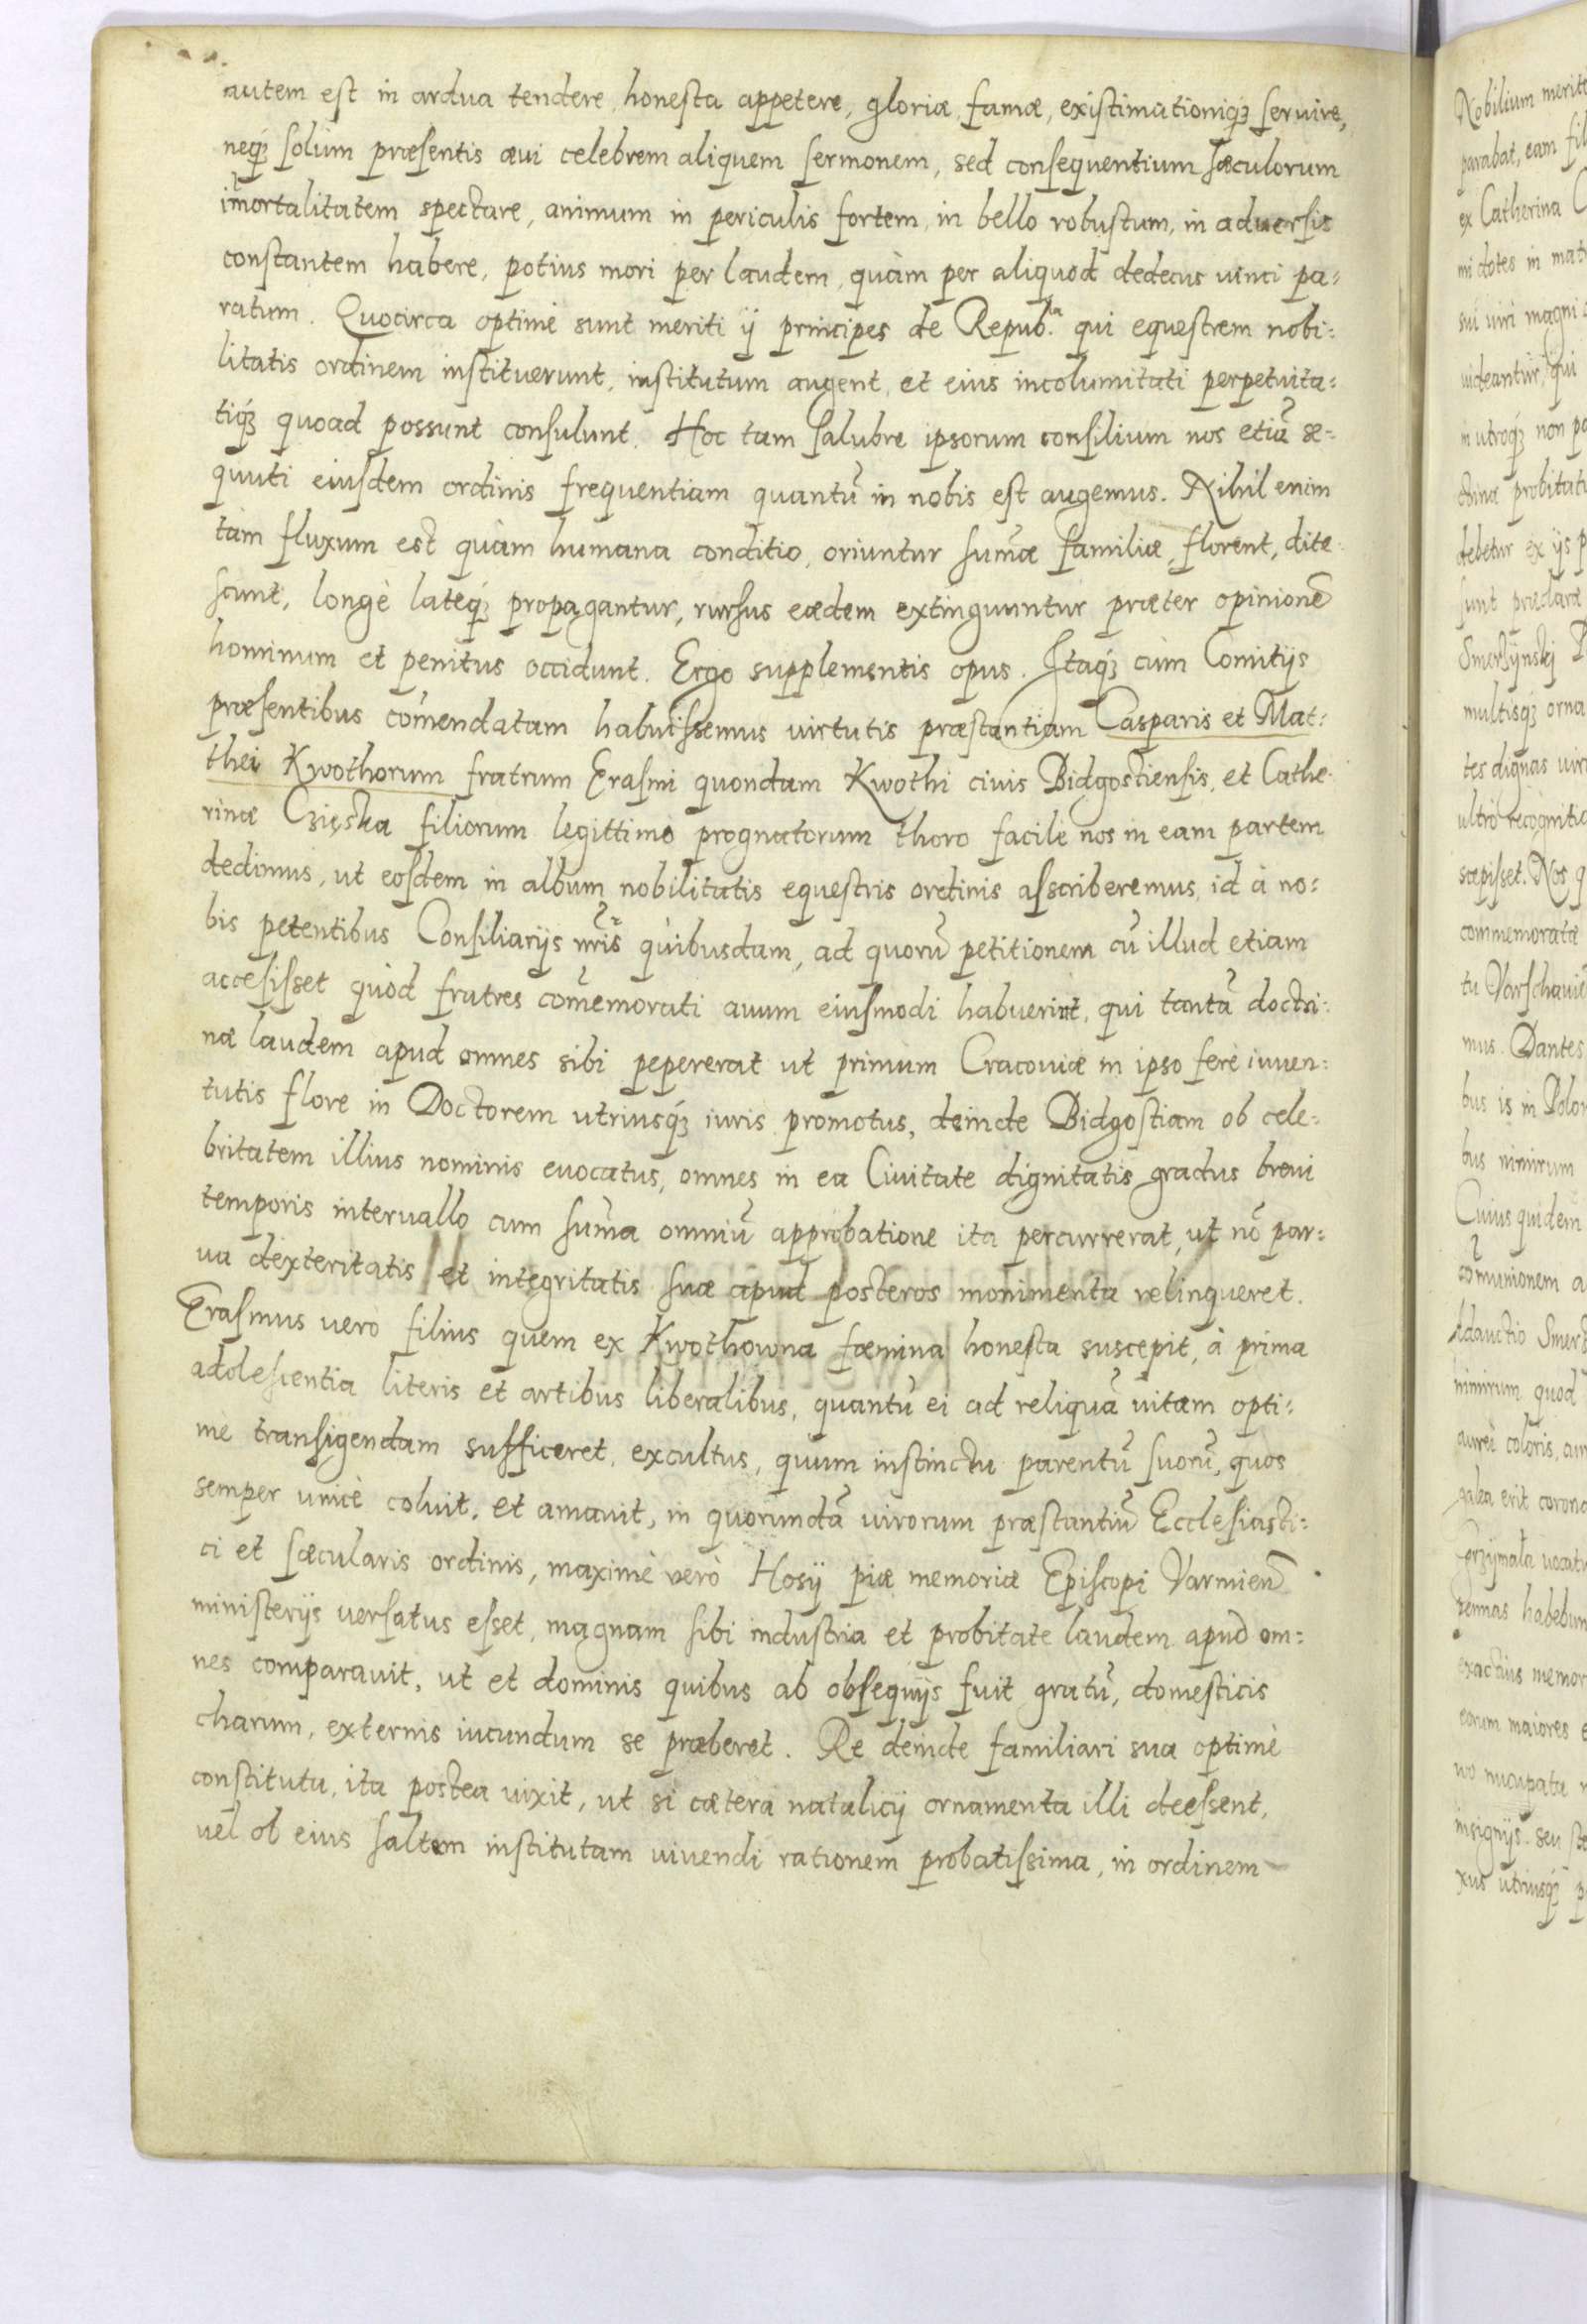 autem est in ardua tendere, honesta appetere, gloriæ, famæ, existimationiq́ȝ seruire,
neq́ȝ solùm præsentis æui celebrem aliquem sermonem, sed consequentium sæculorum
im̃ortalitatem spectare, animum in periculis fortem, in bello robustum, in aduersis
constantem habere, potius mori per laudem, quàm per aliquod dedecus uinci pa=
ratum. Quocirca optimè sunt meriti ij principes de Repub.ca qui equestrem nobi=
litatis ordinem instituerunt, institutum augent, et eius incolumitati perpetuita=
tiq́ȝ quoad possunt consulunt. Hoc tam salubre ipsorum consilium nos etiã se=
quuti eiusdem ordinis frequentiam quantũ in nobis est augemus. Nihil enim
tàm fluxum est quàm humana conditio, oriuntur sum̃æ familiæ, florent, dite
scunt, longè lateq́ȝ propagantur, rursus eædem extinguuntur præter opinionẽ
hominum et penitus occidunt. Ergo supplementis opus. Itaq́ȝ cùm Comitijs
præsentibus com̃endatam habuissemus uirtutis præstantiam Casparis et Mat=
thei Kwothorum fratrum Erasmi quondam Kwothi ciuis Bidgostiensis, et Cathe
rinæ filiorum legittimo prognatorum thoro facilè nos in eam partem
dedimus, ut eosdem in album nobilitatis equestris ordinis asscriberemus, id à no=
bis petentibus Consiliarijs nr̃is quibusdam, ad quorũ petitionem cũ illud etiam
accesisset quòd fratres com̃emorati auum eiusmodi habuerint, qui tantã doctri=
næ laudem apud omnes sibi pepererat ut primùm Cracouiæ in ipso ferè iuuen=
tutis flore in Doctorem utriusq́ȝ iuris promotus, deinde Bidgostiam ob cele=
britatem illius nominis euocatus, omnes in ea Ciuitate dignitatis gradus breui
temporis interuallo cum sum̃a omniũ approbatione ita percurrerat, ut nõ par=
ua dexteritatis et integritatis suæ apud posteros monimenta relinqueret.
Erasmus uerò filius quem ex Kwothowna fœmina honesta suscepit, à prima
adolescentia literis et artibus liberalibus, quantũ ei ad reliquã uitam opti=
me transigendam sufficeret, excultus, quum instinctu parentũ suorũ, quos
semper unicè coluit, et amauit, in quorundã uirorum præstantiũ Ecclesiasti=
ci et sæcularis ordinis, maximè verò Hosij piæ memoriæ Episcopi Varmieñ
ministerijs uersatus esset, magnam sibi industria et probitate laudem apud om=
nes comparauit, ut et dominis quibus ab obsequijs fuit gratũ, domesticis
charum, externis iucundum se præberet. Re deinde familiari sua optimè
constituta, ita postea uixit, ut si cætera natalicij ornamenta illi deessent,
uel ob eius saltem institutam uiuendi rationem probatissima, in ordinem
Nobilium
parabat, eam
ex Catherina
mi dotes in
sui uiri magni
uideantur, qui
in utroq́ȝ non
debetur ex ijs
sunt præclaræ
multisq́ȝ
tes dignas
ultrò
sæpisset. Nos
commemorata
mus. Dantes
bus is in
bus nimirum
Cuius quidem
com̃unionem
nimirum quod
aurei coloris,
galea erit
uocatu
exactius
eorum maiores
insignijs seu
xus utriusq́ȝ